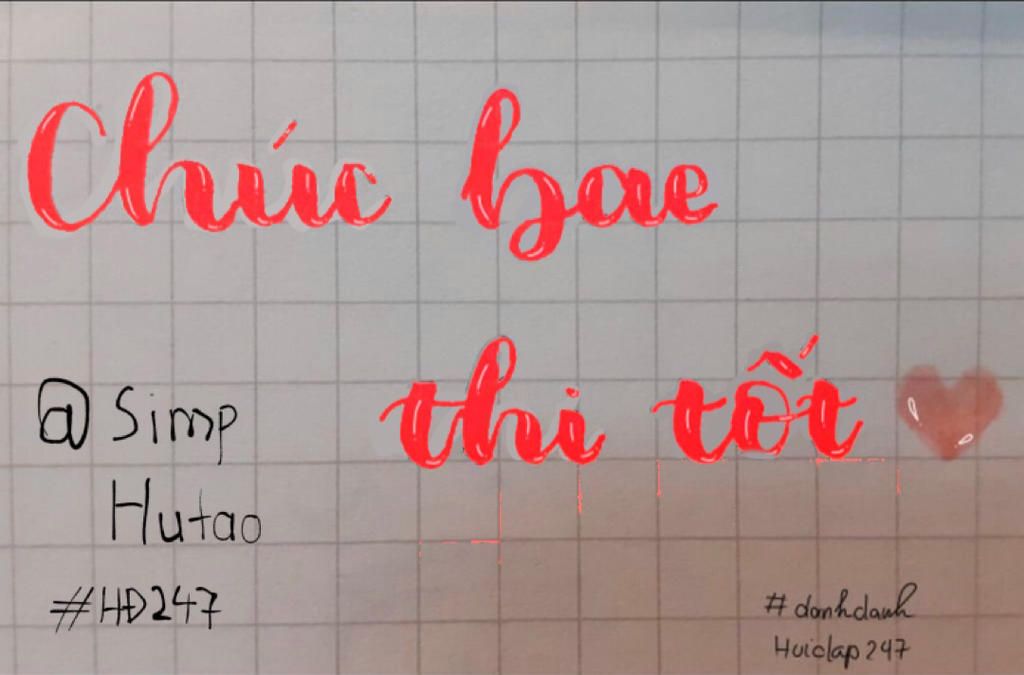 Chúc bae
thi tốt
@Simp
Hutao
#HĐ247
#donhdanh
Huiclap247